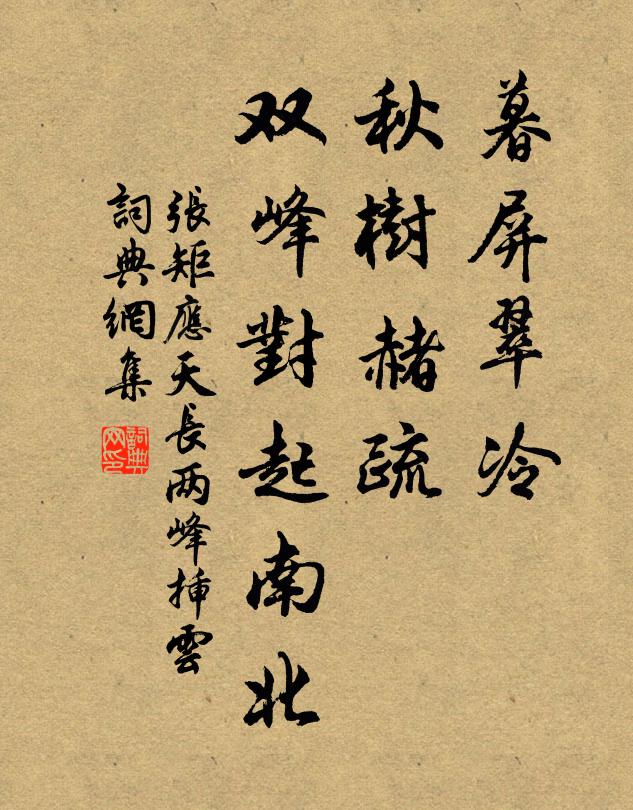 暮屏翠冷
秋樹赭疏
双峰對起南北
張矩應天長两峰挿雲
詞典網集
詞典網印